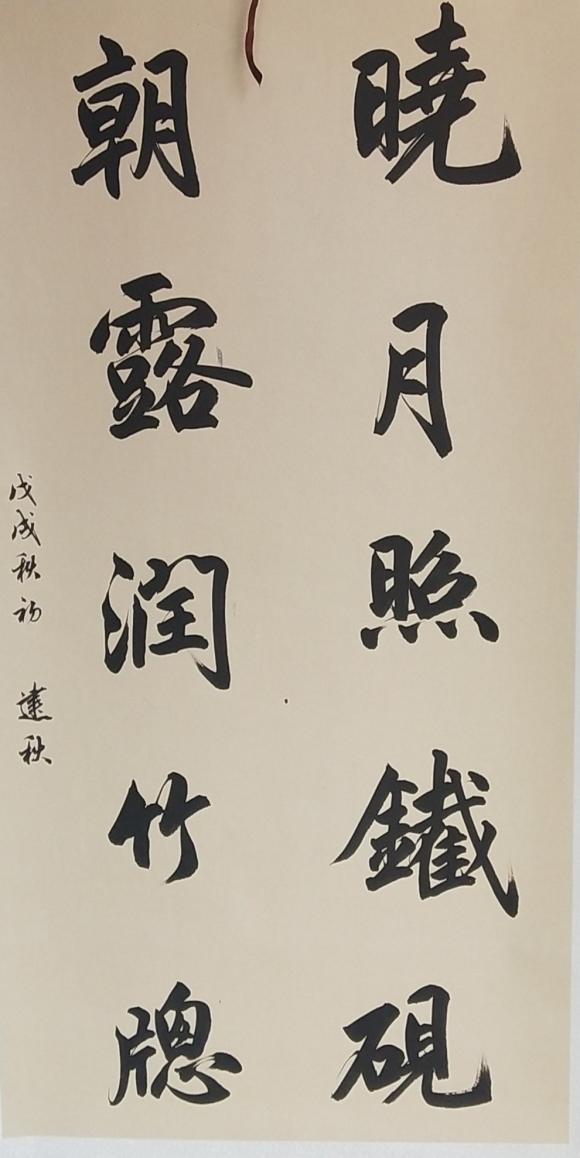 曉月照鐵硯
朝露潤竹牕
戊戌秋初
秋